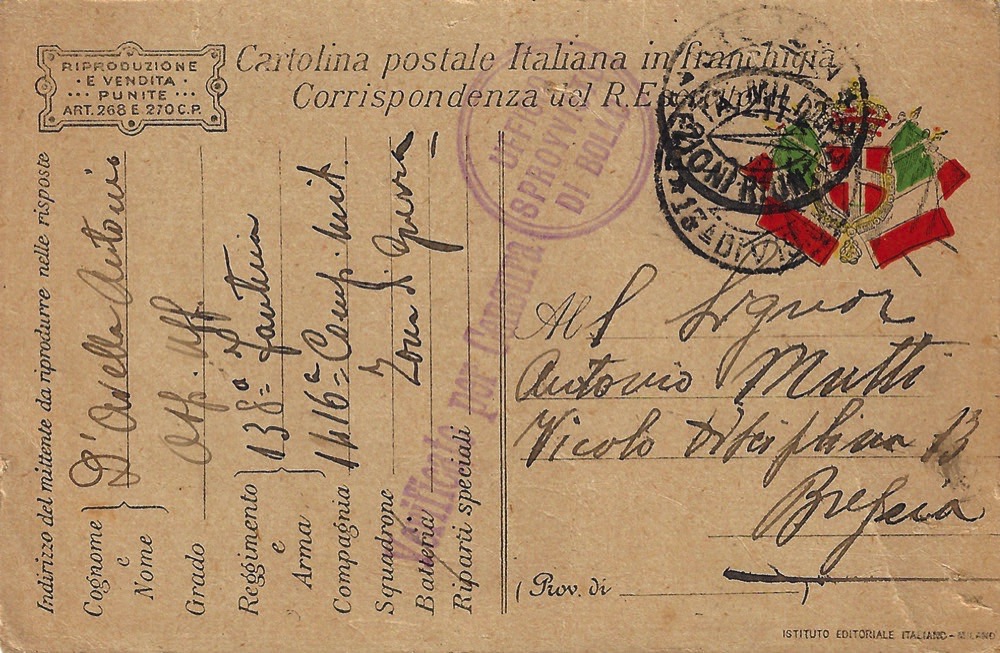 RIPRODUZIONE
E VENDITA
PUNITE
ART. 268 E 270 C.P.
Cartolina postale Italiana in franchigia
Corrispondenza del R. Esercito
UFFICIO
SPROVVISTO
DI BOLLO
Verificato per Censura
Indirizzo del mittente da riprodurre nelle risposte
Cognome e Nome
D'Avella Antonio
Grado
Reggimento e Arma
138ª Fanteria
Compagnia
1416ª Comp. Mit.
Squadrone
Zona di Guerra
Batteria
Riparti speciali
Al Signor
Antonio Mutti
Vicolo Disciplina 13
Brescia
(Prov. di )
ISTITUTO EDITORIALE ITALIANO - MILANO